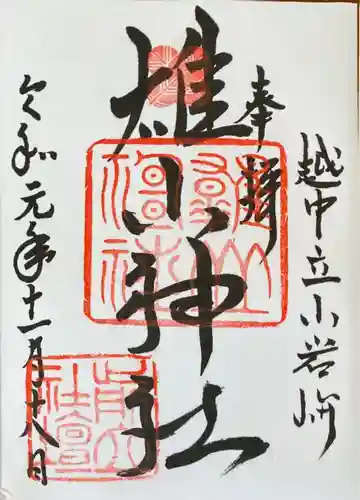 越中立山岩峅
奉拝
雄山神社
令和元年十一月十八日